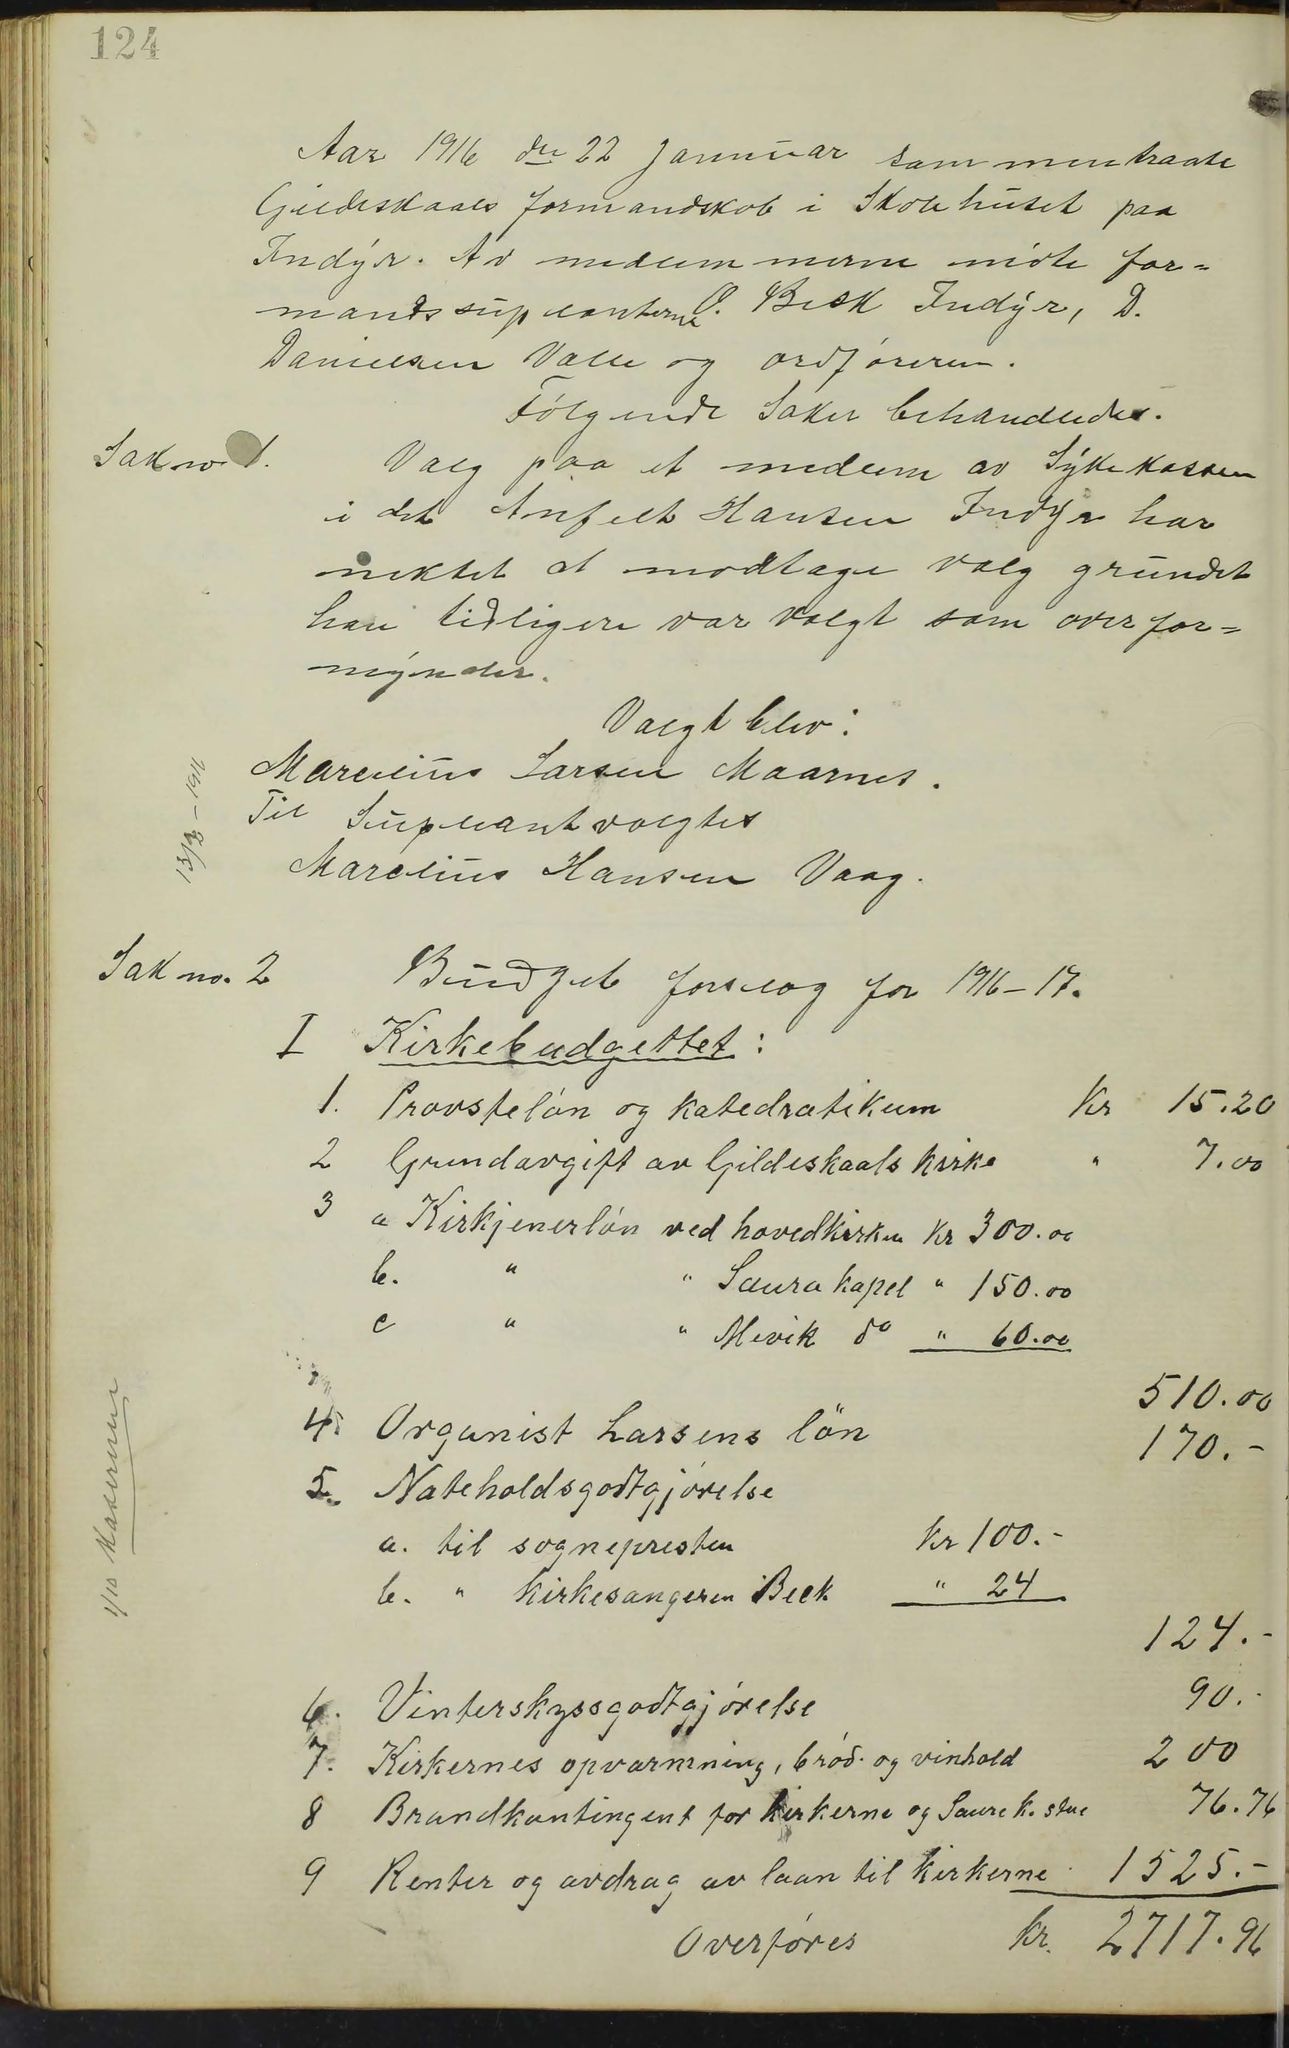 124
Aar 1916 den 22 Januar sammentraate
Gildeskaals formandskob i Skolehuset paa
Indyr. Av medlemmerne møtte for=
mandssupleanterne O. Besk Indyr, D.
Danielsen Valle og ordføreren.
Følgende Saker behandledes.
Sak no 1. Valg paa et medlem av Sykekassen
i det Anfelt Hansen Indyr har
nektet at modtage valg grundet
han tidligere var valgt som overfor=
mynder.
Valgt blev:
Marelius Larsen Maarnes.
Til Supleant valgtes
Marelius Hansen Vaag.
Sak no. 2 Budget forslag for 1916-17.
I Kirkebudgettet:
1. Provstelön og katedratikum kr 15.20
2 Grundavgift av Gildeskaals kirke " 7.00
3 a Kirkjenerlön ved hovedkirken kr 300.00
b. " " Saura kapel " 150.00
c " " Mevik do " 60.00
510.00
4. Organist Larsens lön 170.-
5. Nateholdsgodtgjörelse
a. til sognepresten kr 100.-
b. " kirkesangeren Beck " 24
124.-
6. Vinterskyssgodtgjörelse 90.-
7. Kirkernes opvarmning, bröd- og vinhold 200
8 Brandkontingent for kirkerne og Saura k. stue 76.76
9 Renter og avdrag av laan til kirkerne 1525.-
Overföres kr. 2717.96
1/10 Kasernen